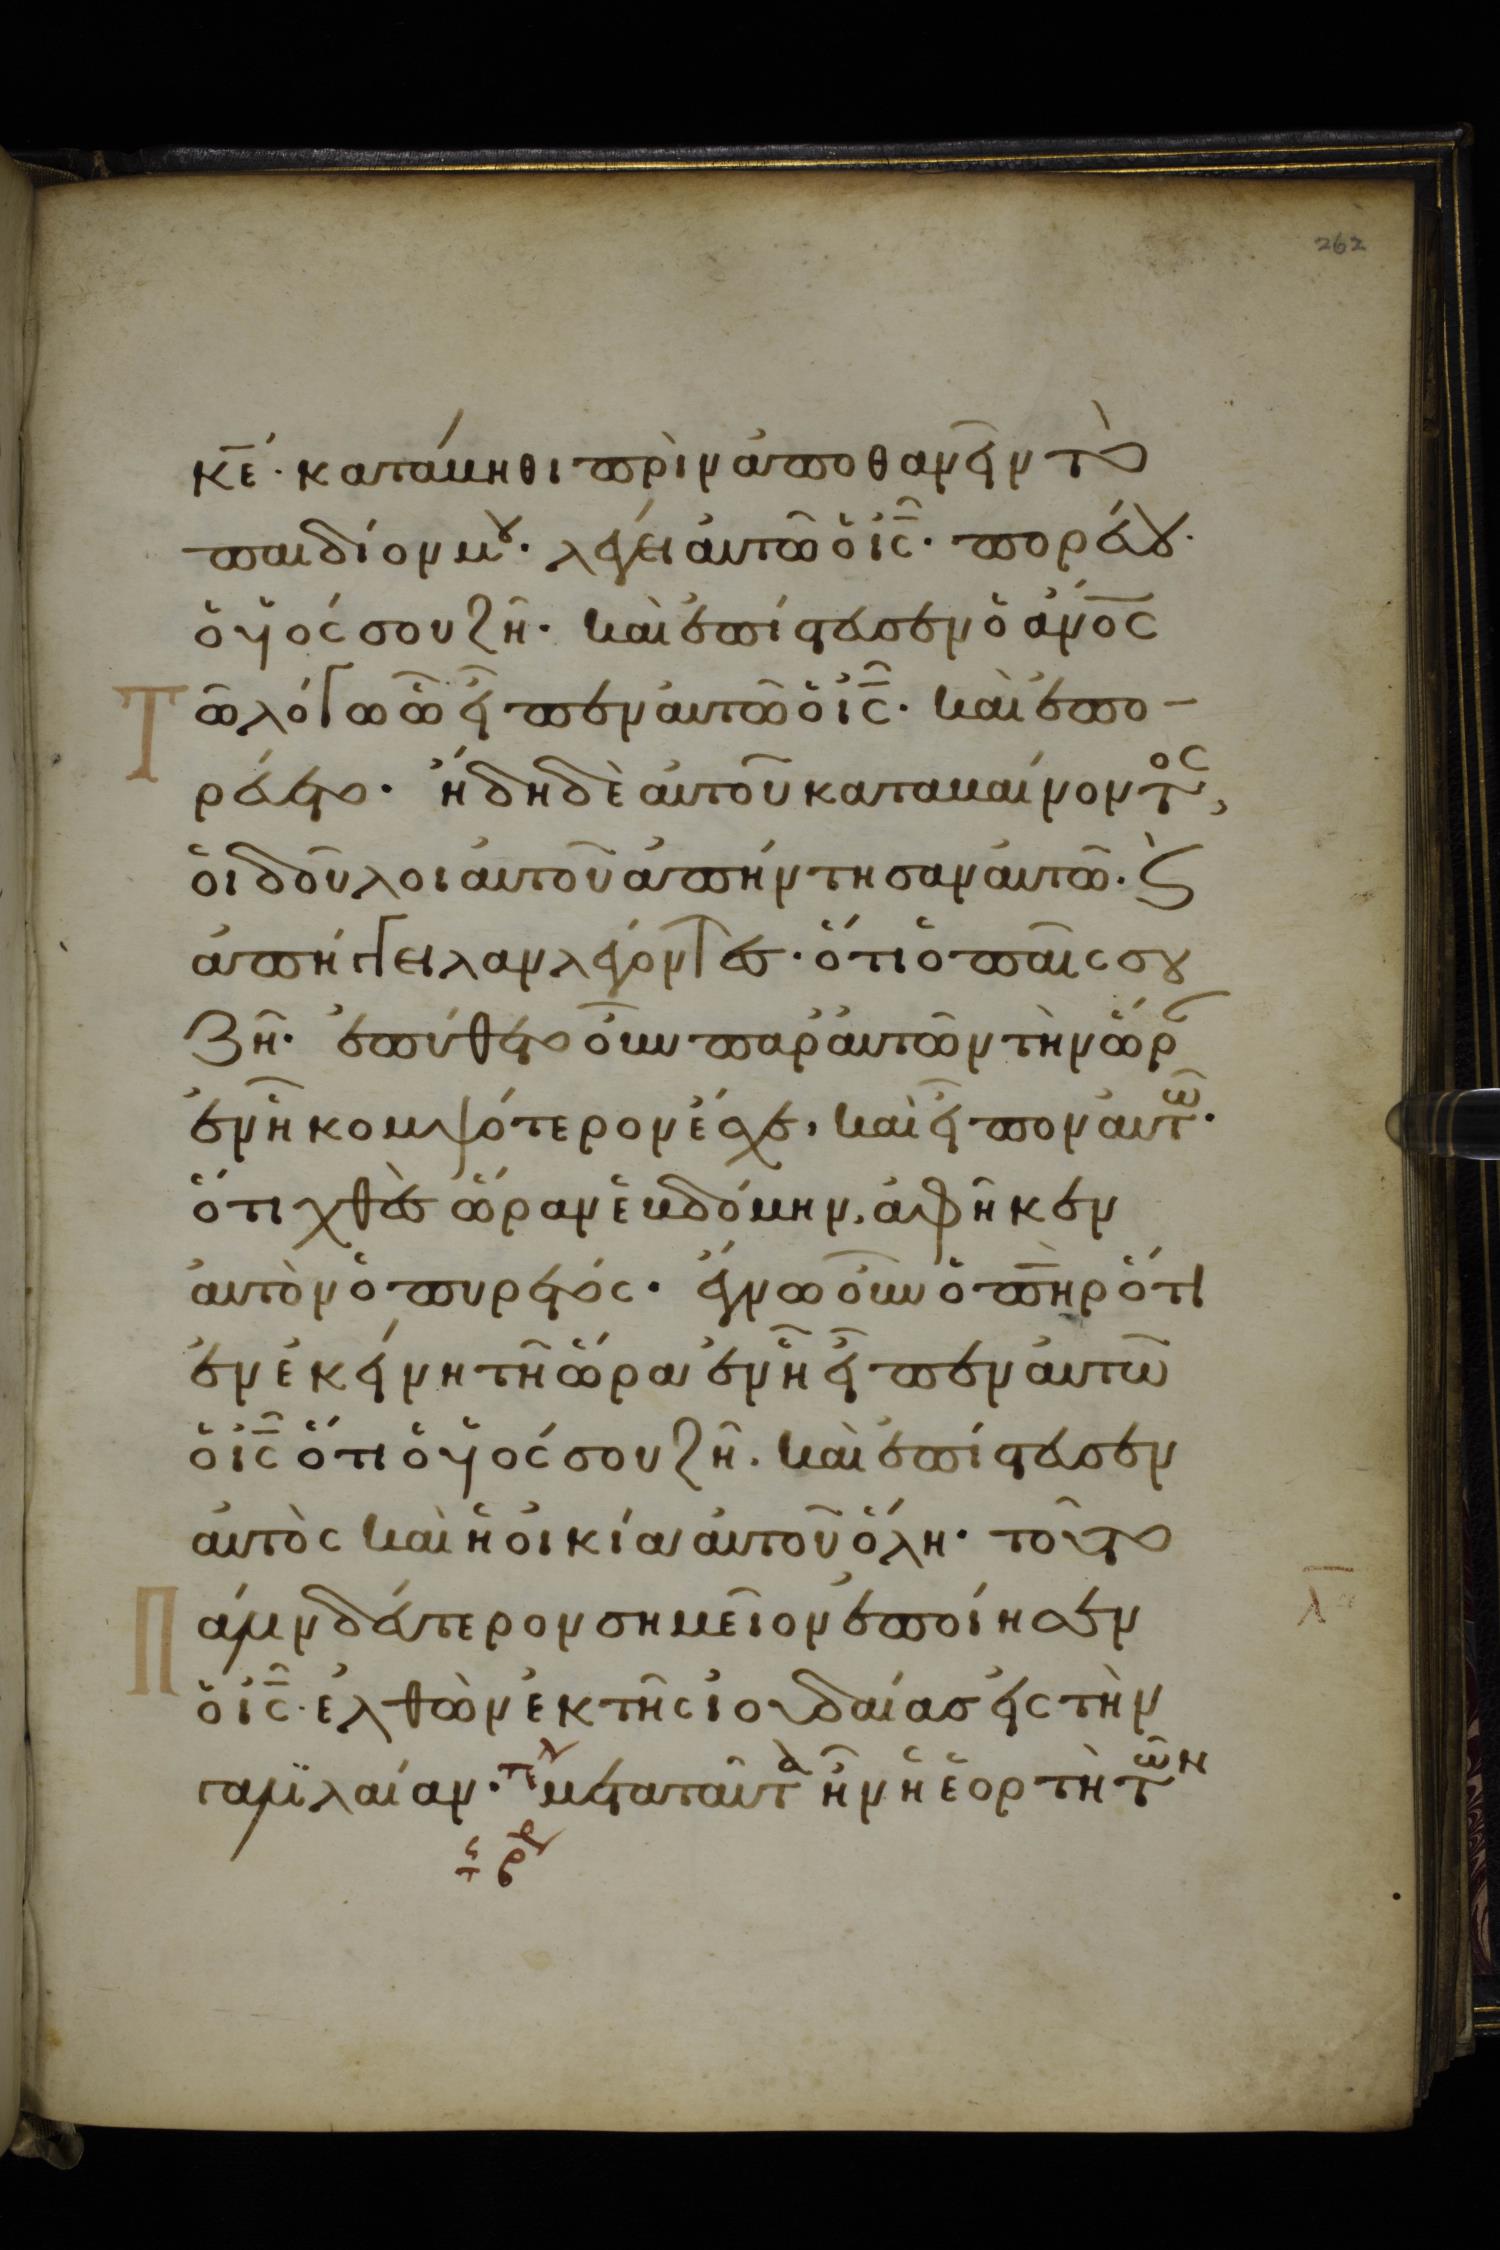 262
κ̅ε̅· κατάμηθι πρὶν ἀποθανεῖν τὸ
παιδίον μου· λέγει αὐτῶ ὁ ι̅ς̅· πορεύου·
ὁ υἱός σου ζῆ· καὶ ἐπίστευσεν ὁ ἄν̅ο̅ς̅
Τῶ λόγω ὧ εἶπεν αὐτῶ ὁ ι̅ς̅· καὶ ἐπο-
ρεύετο· ἤδη δὲ αὐτοῦ καταβαίνοντος,
ὁι δοῦλοι αὐτοῦ ἀπήντησαν αὐτῶ· ϗ
ἀπήγγειλαν λέγοντες· ὅτι ὁ παῖς σου
ζῆ· ἐπύθετο οὖν παρ' αὐτῶν τὴν ὥρ
ἐν ἧ κομψότερον ἔσχε, καὶ εἶπον αὐτῶ·
ὅτι χθὲς ὥραν ἑβδόμην, ἀφῆκεν
αὐτὸν ὁ πυρετός· ἔγνω οὖν ὁ π̅η̅ρ ὅτι
ἐν ἐκείνη τῆ ὥρα ἐν ἧ εἶπεν αὐτῶ
ὁ ι̅ς̅ ὅτι ὁ υἱός σου ζῆ. καὶ ἐπίστευσεν
αὐτὸς καὶ ἡ οἰκία αὐτοῦ ὅλη· τοῦτο
Πάλιν δεύτερον σημεῖον ἐποίησεν
ὁ ι̅ς̅· ἐλθὼν ἐκ τῆς ἰουδαίας εἰς τὴν
γαλιλαίαν· μετα ταῦτα ἦν ἡ ἑορτὴ τῶν